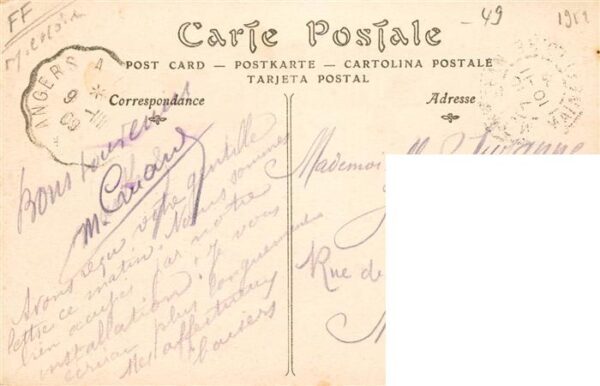 FF
- 49
1911
Carte Postale
POST CARD — POSTKARTE — CARTOLINA POSTALE
TARJETA POSTAL
ANGERS A
9 -III
09
Correspondance
Adresse
Bons souvenirs
M. 
Avons reçu votre gentille
lettre ce matin. Nous sommes
bien occupés par notre
installation. Je vous
écrirai plus longuement
Mes affectueux
baisers
Mademoi
Rue de